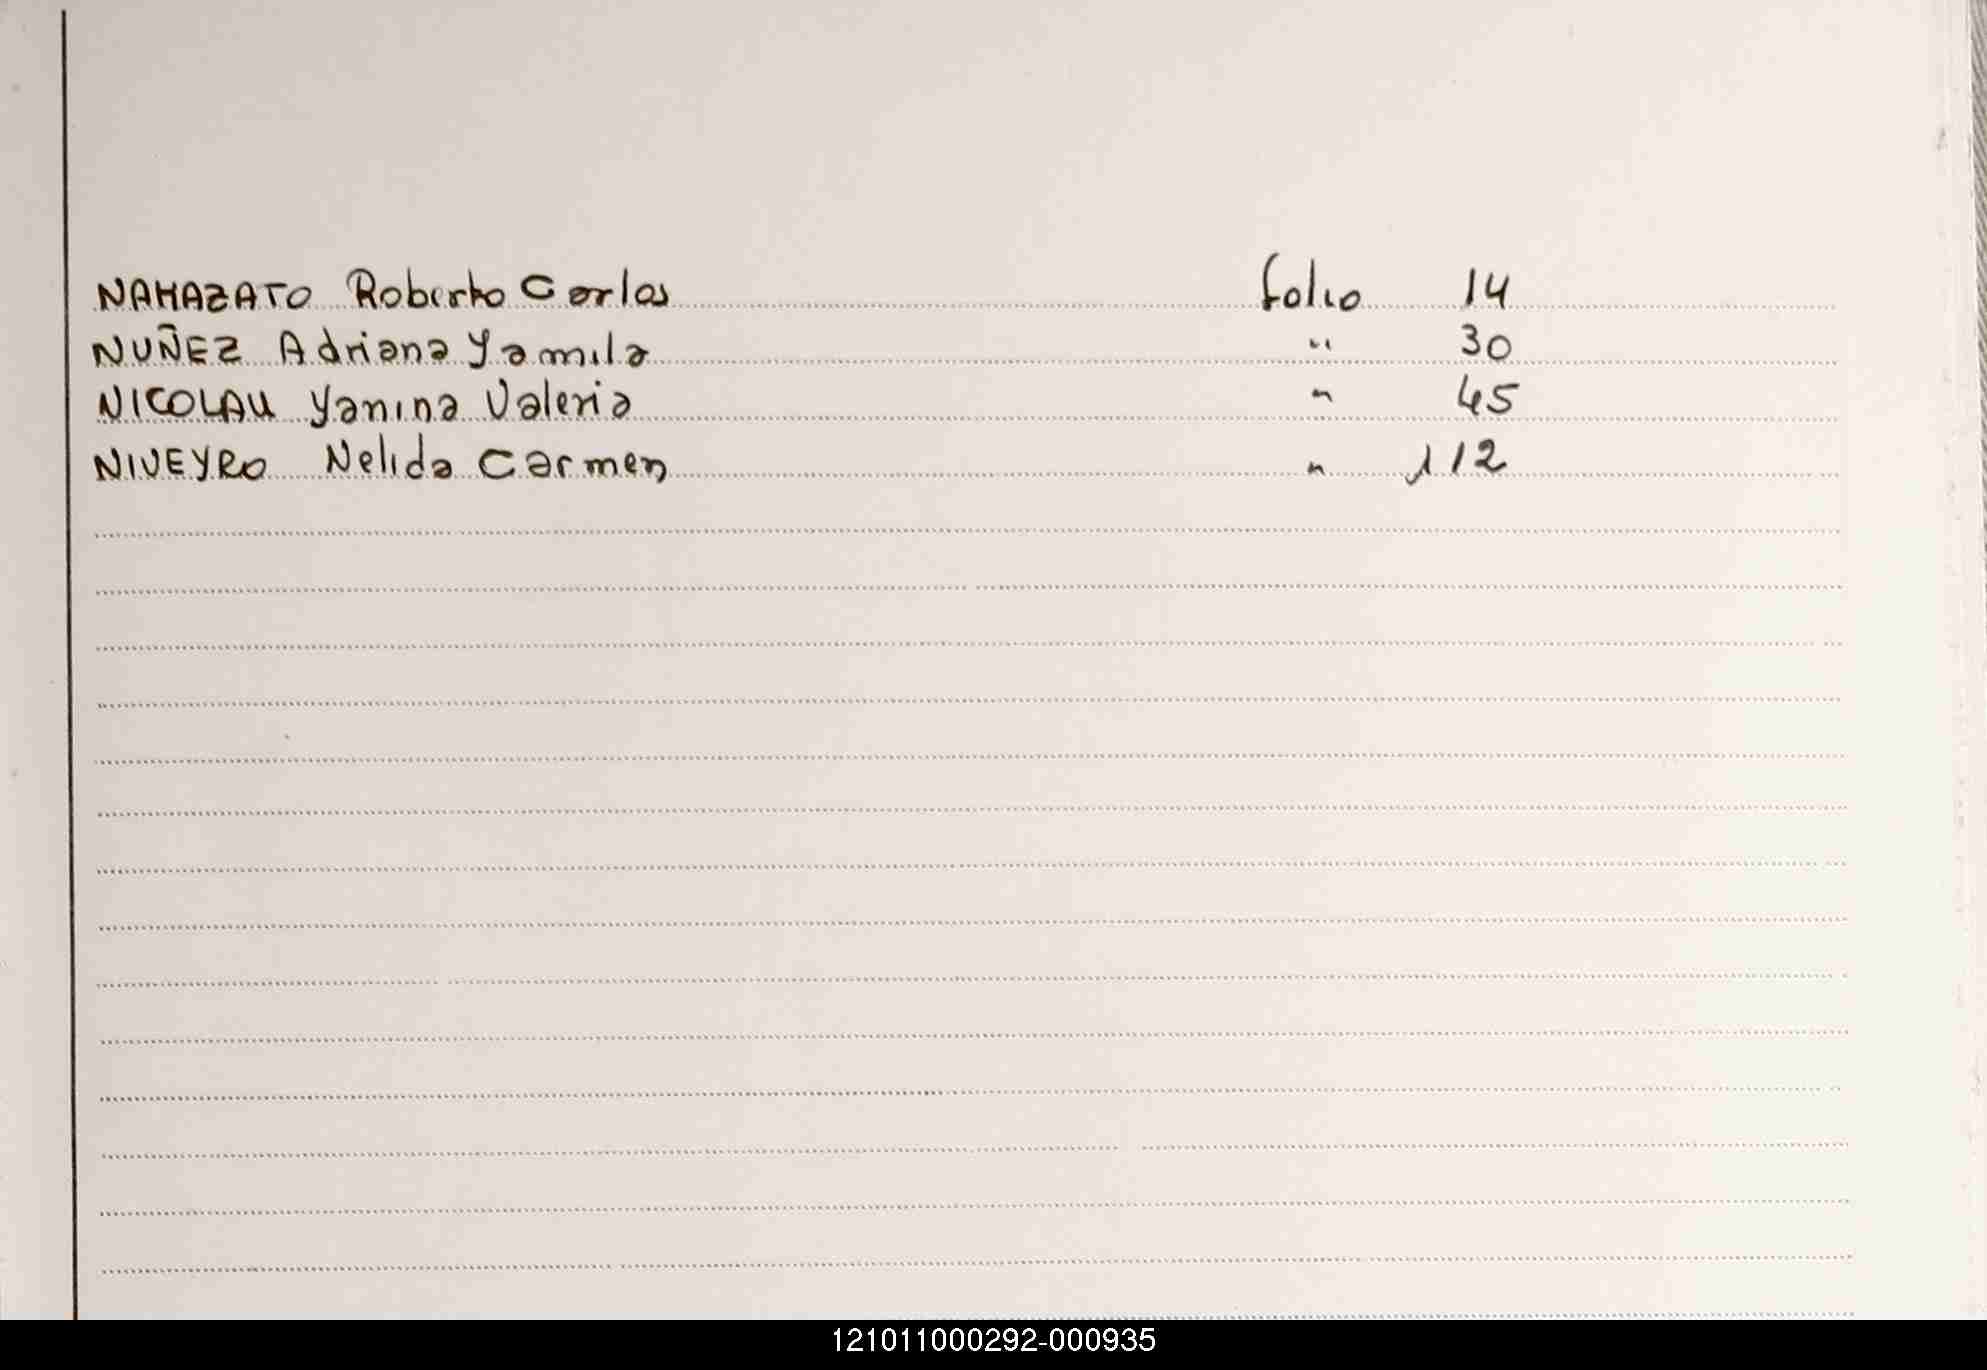 NAHAZATO Roberto Carlos folio 14
NUÑEZ Adriana Yamila " 30
NICOLAU Yanina Valeria " 45
NIVEYRO Nelida Carmen " 112
121011000292-000935